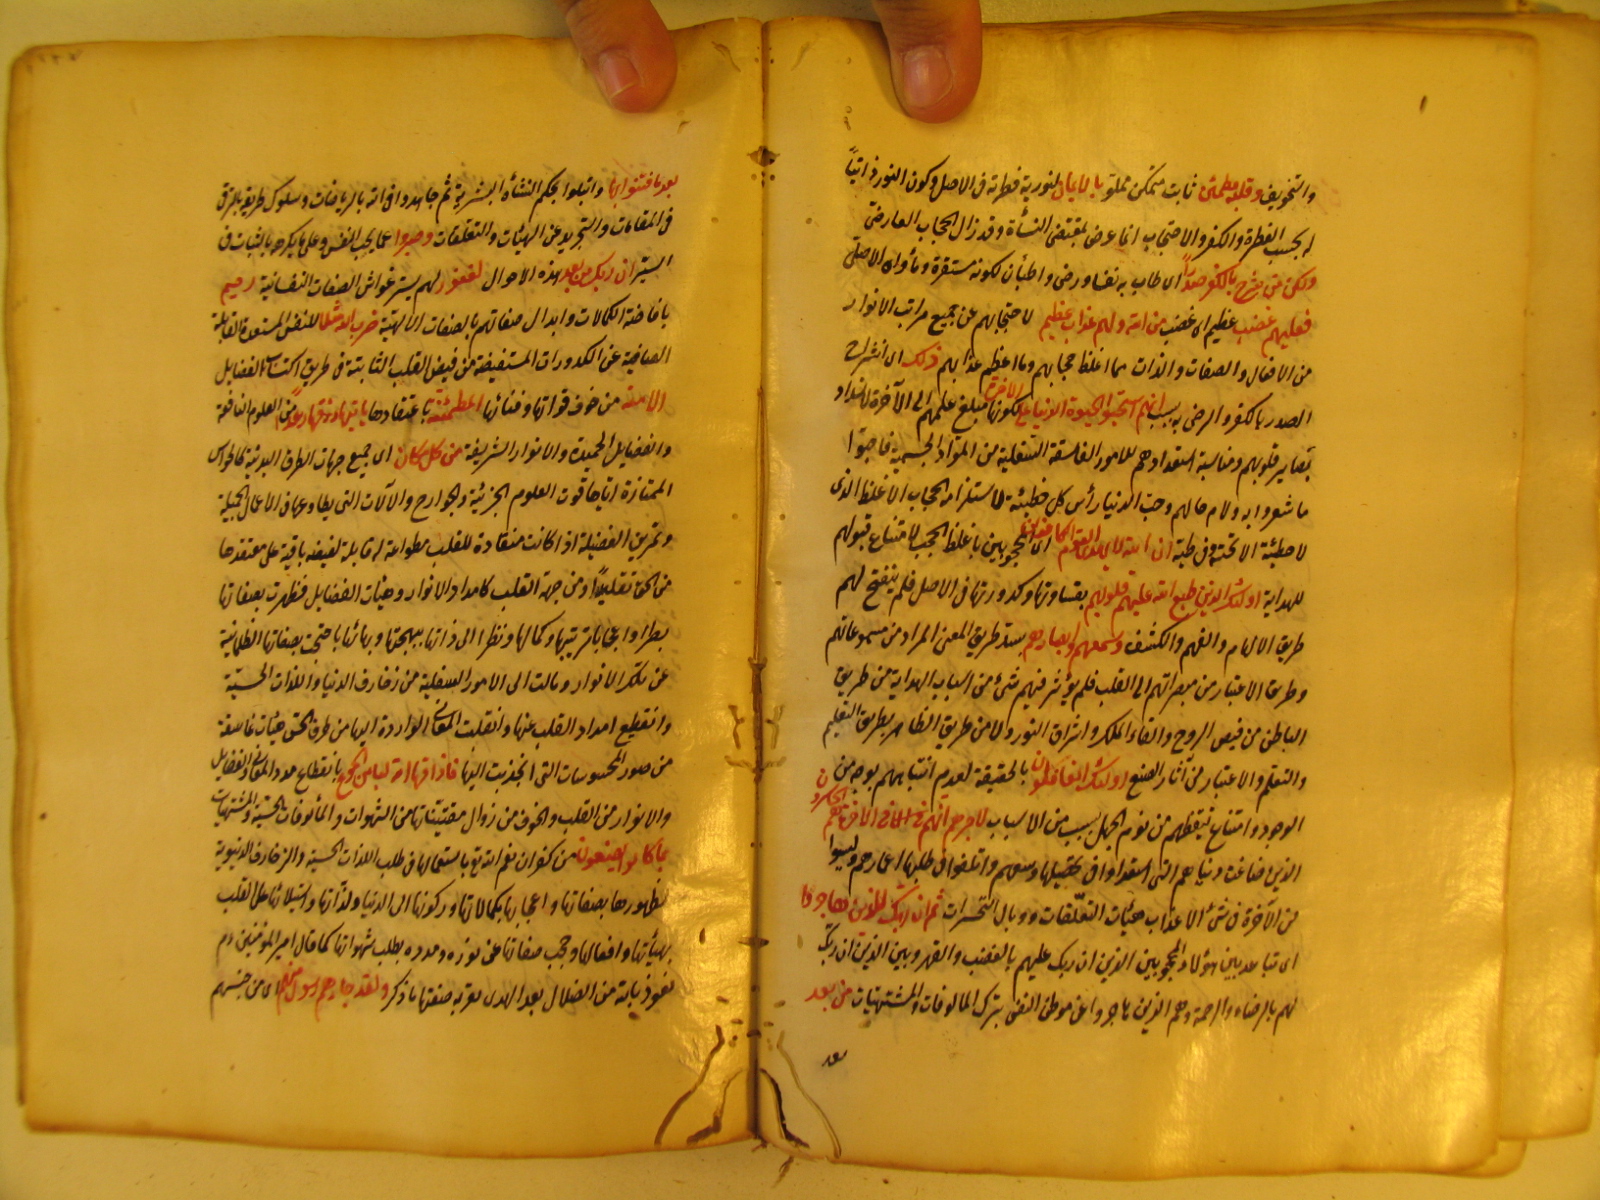 والتخويف وقلبه مطمئن ثابت متمكن مملو بالايمان لنورية فطرته في الاصل وكون النور ذاتيا
له بحسب الفطرة والكفر والاحتجاب انما عرض بمقتضى النشأة وقد زال الحجاب العارضي
ولكن من شرح بالكفر صدرا اى طاب به نفسا ورضى واطمأن لكونه مستقره ومأواه الاصلى
فعليهم غضب عظيم اى غضب من الله ولهم عذاب عظيم لاحتجابهم عن جميع مراتب الانوار
من الافعال والصفات والذات فما اغلظ حجابهم وما اعظم عذابهم ذلك اى انشراح
الصدر بالكفر والرضى به بسبب انهم استحبوا الحيوة الدنيا على الاخرة لكونها مبلغ علمهم الى الآخرة لانسداد
بصاير قلوبهم ومناسبة استعدادهم للامور الفاسقة السفلية من المواد الجسمية فاحبوا
ما شعروا به ولام حالهم وحب الدنيا رأس كل خطيئة لاستلزامه الحجاب الاغلظ الذى
لا خطيئة الا تحته وفي طيه ان الله لا يهدى القوم الكافرين اى المحجوبين باغلظ الحجب لامتناع قبولهم
للهداية اولئك الذين طبع الله عليهم قلوبهم بقساوتها وكدورتها في الاصل فلم ينفتح لهم
طريق الالهام والفهم والكشف وسمعهم وابصارهم بسد طريق المعنى المراد من مسموعاتهم
وطريق الاعتبار من مبصراتهم الى القلب فلم يؤثر فيهم شئ من اسباب الهداية من طريق
الباطن من فيض الروح والقاء الملك واشراق النور ولا من طريق الظاهر بطريق التعليم
والتعلم والاعتبار من آثار الصنع اولئك الغافلون بالحقيقة لعدم انتباههم بوجه من
الوجوه وامتناع تيقظهم من نوم الجهل بسبب من الاسباب لا جرم انهم في الآخرة هم الخاسرون
الذين ضاعت دنياهم التى استعدوا في تحصيلها وسعهم واتلفوا في طلبها اعمارهم وليسوا
من الآخرة في شئ الا عذاب هيئات التعلقات ووبال التحسرات ثم ان ربك للذين هاجروا
اى تباعد بين هؤلاء المحجوبين الذين ان ربك عليهم بالغضب والقهر وبين الذين ان ربك
لهم بالرضاء والرحمة وهم الذين هاجروا عن موطن النفس بترك المالوفات والمشتهيات من بعد
بعد
بعد ما فتنوا اى وابتلوا بحكم النشأة البشرية ثم جاهدوا في الله بالرياضات وسلوك طريقه بالترقى
في المقامات والتجريد عن الهيئات والتعلقات وصبروا عما يحب النفس وعلى ما يكرهه بالثبات في
السير ان ربك من بعد هذه الاحوال لغفور لهم يستر غواشى الصفات النفسانية رحيم
بافاضة الكمالات وابدال صفاتهم بالصفات الالهية ضرب الله مثلا للنفس المستعدة القابلة
الصافية عن الكدورات المستفيضة من فيض القلب الثابتة في طريق اكتساب الفضايل
الامنة من خوف فواتها وفنائها المطمئنة باعتقادها يأتيها رزقها رغدا من العلوم النافعة
والفضايل الحميدة والانوار الشريفة من كل مكان اى جميع جهات الطرق البدنية كالحواس
الممتازة اياها قوت العلوم الجزئية والجوارح والآلات التى يطاوعها في الاعمال الجميلة
وتمرين الفضيلة اذا كانت منقادة للقلب مطواعة له قابلة لفيضه باقية على معتقدها
من الحق تقليدا ومن جهة القلب كامداد الانوار وهيئات الفضايل فظهرت بصفاتها
بطرا واعجابا بزينتها وكمالها ونظرا الى ذاتها ببهجتها وبهائها فاحتجبت بصفاتها الظلمانية
عن تلك الانوار ومالت الى الامور السفلية من زخارف الدنيا واللذات الحسية
وانقطع امداد القلب عنها وانقلبت المعانى الواردة اليها من طرق الحس هيئات غاسقة
من صور المحسوسات التى انجذبت اليها فاذاقها الله لباس الجوع بانقطاع مدد المعانى والفضايل
والانوار من القلب والخوف من زوال مقتنياتها من الشهوات والمألوفات الحسية والمشتهيات
بما كانوا يصنعون من كفران نعم الله تع باستعمالها في طلب اللذات الحسية والزخارف الدنيوية
لظهورها بصفاتها واعجابها بكمالاتها وركونها الى الدنيا ولذاتها واستيلائها على القلب
بهيئاتها وافعالها وحجب صفاتها عن نوره ومدده بطلب شهواتها كما قال امير المؤمنين ءم
نعوذ بالله من الضلال بعد الهدى بقرية صفتها ما ذكر ولقد جاءهم رسول منهم اى من جنسهم